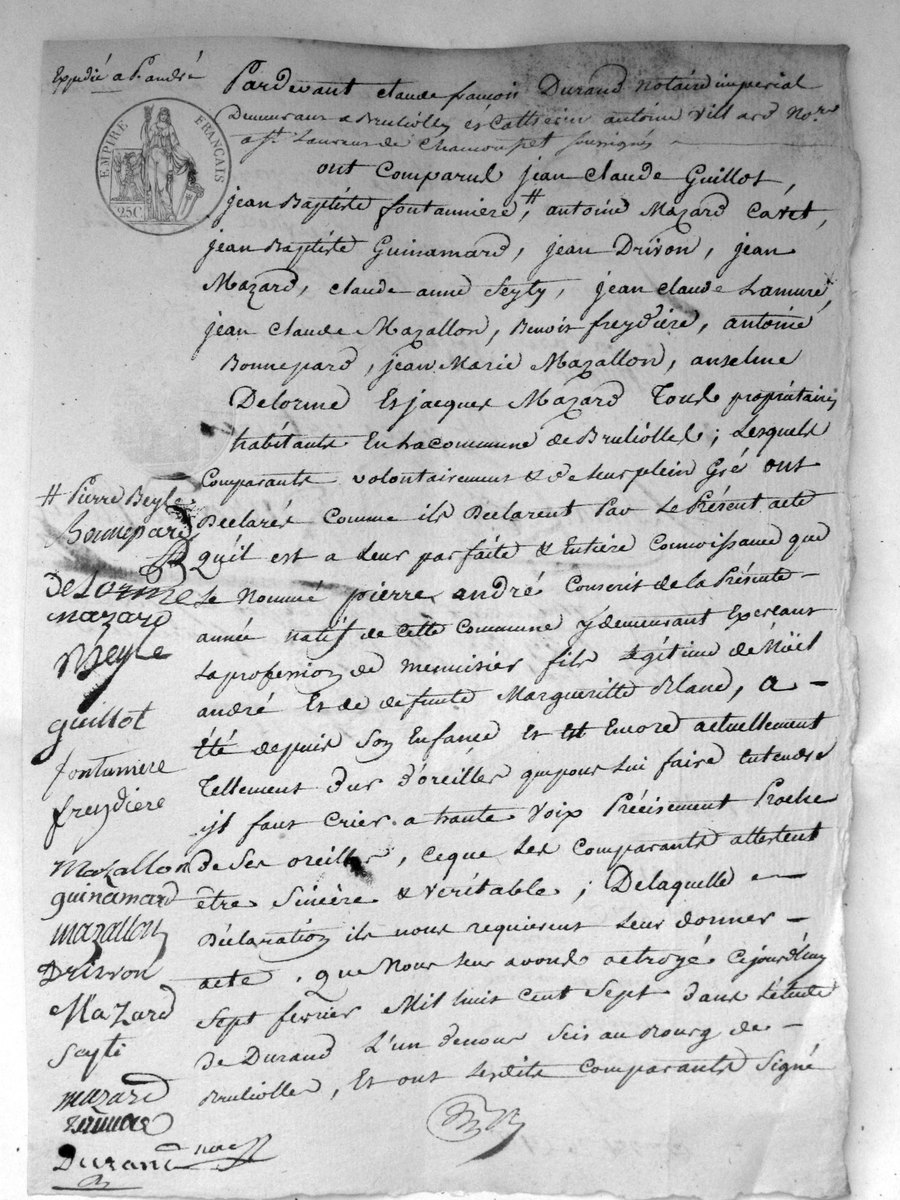 Expédié a P. andré
EMPIRE FRANÇAIS
25C
Pardevant claude françois Durand notaire imperial
Demeurant a Brulliolles et Catherin antoine Villard No.re
a St. Laurent de Chamousset soussignés
ont Comparut jean Claude Guillot,
jean Baptiste fontannière #, antoine Mazard Cavet,
jean Baptiste Guinamard, jean Drivon, jean
Mazard, Claude anne Seyty, jean claude Lamure,
jean Claude Mazallon, Benoit freydière, antoine
Bonnepard, jean Marie Mazallon, anselme
Delorme Et jacques Mazard Tous propriétaires
habitants En La commune de Brulliolles; Lesquels
Comparants volontairement & de leur plein Gré ont
Déclarés Comme ils Déclarent Par Le Présent acte
Qu'il est a Leur parfaite & Entière Connoissance que
Le Nommé pierre andré Conscrit de la Présente
année natif de cette Commune y demeurant Exerçant
La profession de menuisier fils Légitime de Noël
andré Et de defunte Margueritte Blanc, a
été depuis Son Enfance Et Encore actuellement
Tellement dur d'oreilles que pour Lui faire Entendre
il faut Crier a haute Voix Précisement Proche
de Ses oreilles, Ce que Les Comparants attestent
être Sincère & véritable; De laquelle
Déclaration ils nous requierent Leur donner
acte, que Nous Leur avons octroyé Ce jourd'huy
Sept fevrier Mil huit Cent Sept dans L'étude
de Durand L'un de nous Sis au Bourg de
Brulliolles, Et ont Lesdits Comparants Signé
# Pierre Beyle
Bonnepard
DeLorme
mazard
PBeyle
guillot
fontannière
freydiere
Mazallon
guinamard
mazallon
Drivon
Mazard
Seyti
mazard
Durand nore